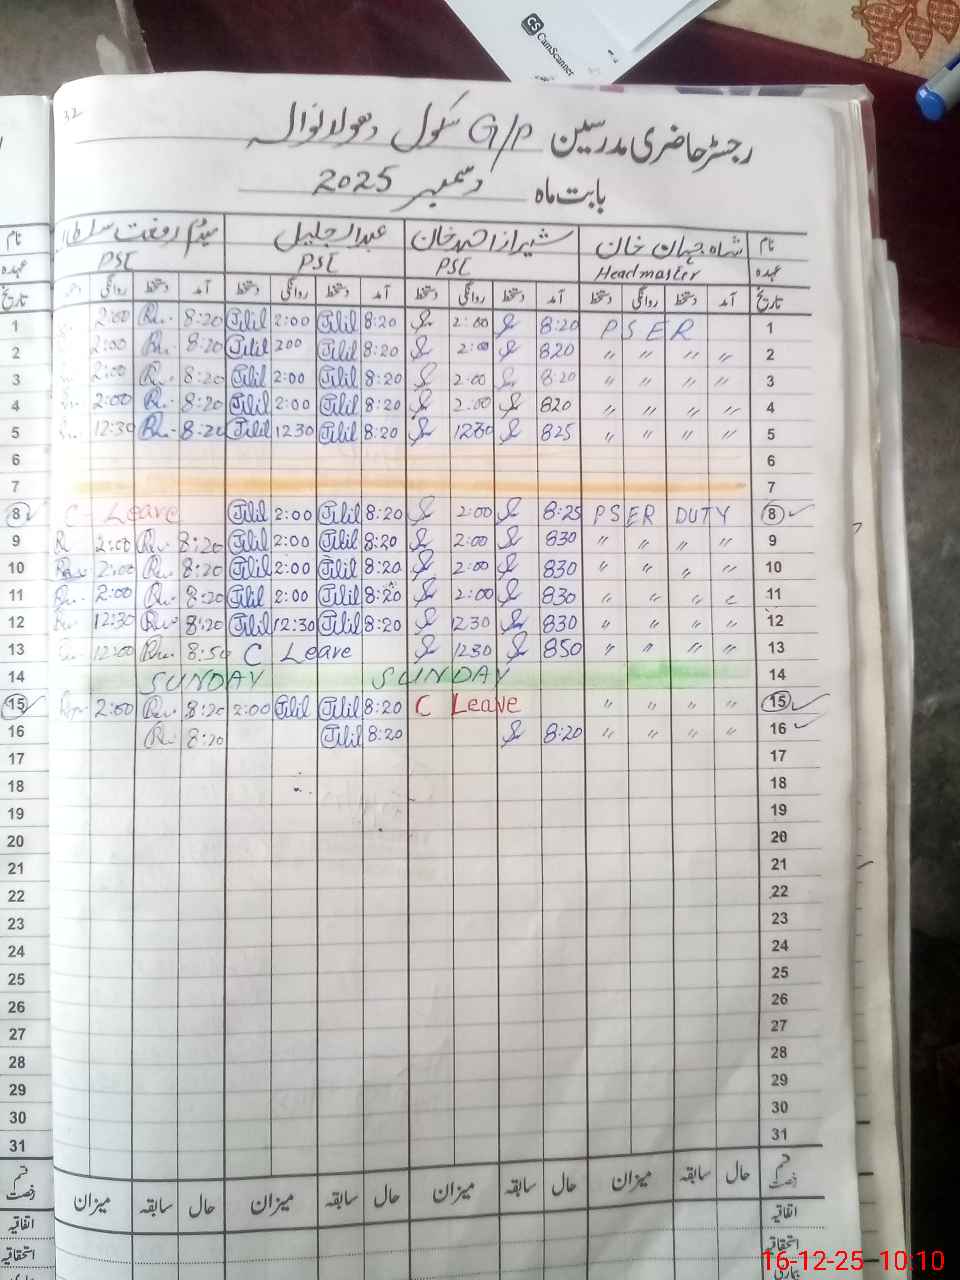 CS CamScanner
32
رجسٹر حاضری مدرسین G/P سکول دھولانوالہ
بابت ماہ دسمبر 2025
نام شاہ جہان خان شیراز احمد خان عبدالجلیل میڈم رفعت سلطانہ نام
عہدہ Headmaster PSC PSC عہدہ
تاریخ آمد دستخط روانگی دستخط آمد دستخط روانگی دستخط آمد دستخط روانگی دستخط آمد دستخط روانگی تاریخ
1 2:00 Rw. 8:20 Jilil 2:00 Jilil 8:20 2:00 8:20 P S E R 1
2 2:00 R. 8:20 Jilil 200 Jilil 8:20 2:00 820 〃 〃 〃 〃 2
3 2:00 R. 8:20 Jilil 2:00 Jilil 8:20 2:00 8:20 〃 〃 〃 〃 3
4 2:00 R. 8:20 Jilil 2:00 Jilil 8:20 2:00 820 〃 〃 〃 〃 4
5 12:30 Rw. 8:20 Jilil 1230 Jilil 8:20 1230 825 〃 〃 〃 〃 5
6 6
7 7
8 C - Leave Jilil 2:00 Jilil 8:20 2:00 8:25 PSER DUTY 8
9 R 2:00 Rw 8:20 Jilil 2:00 Jilil 8:20 2:00 830 〃 〃 〃 〃 9
10 2:00 Rw 8:20 Jilil 2:00 Jilil 8:20 2:00 830 〃 〃 〃 〃 10
11 2:00 Rw 8:20 Jilil 2:00 Jilil 8:20 2:00 830 〃 〃 〃 〃 11
12 12:30 Rw 8:20 Jilil 12:30 Jilil 8:20 1230 830 〃 〃 〃 〃 12
13 12:00 Rw 8:50 C Leave 1230 850 〃 〃 〃 〃 13
14 SUNDAY SUNDAY 14
15 2:00 Rw. 8:20 2:00 Jilil Jilil 8:20 C Leave 〃 〃 〃 〃 15
16 Rw 8:20 Jilil 8:20 8:20 〃 〃 〃 〃 16
17 17
18 18
19 19
20 20
21 21
22 22
23 23
24 24
25 25
26 26
27 27
28 28
29 29
30 30
31 31
قسم رخصت حال سابقہ میزان حال سابقہ میزان حال سابقہ میزان حال سابقہ میزان قسم رخصت
اتفاقیہ اتفاقیہ
استحقاقیہ استحقاقیہ
بیماری
16-12-25 10:10